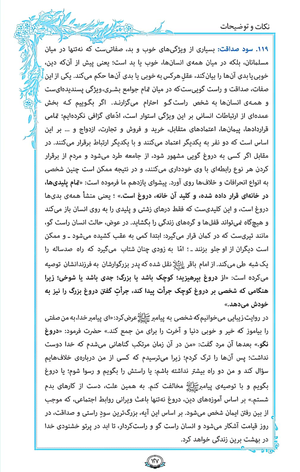 نکات و توضیحات
۱۱۹. سود صداقت: بسیاری از ویژگی‌های خوب و بد، صفاتی‌ست که نه‌تنها در میان
مسلمانان، بلکه در میان همه‌ی انسان‌ها، خوب یا بد است؛ یعنی پیش از آن‌که دین،
خوبی یا بدی آن‌ها را بیان کند، عقل هرکس به خوبی یا بدی آن‌ها حکم می‌کند. یکی از این
صفات، صداقت و راست گویی‌ست که در میان تمام جوامع بشری، ویژگی پسندیده‌ای‌ست
و همه‌ی انسان‌ها به شخص راست‌گو احترام می‌گزارند. اگر بگوییم که بخش
عمده‌ای از ارتباطات انسانی بر این ویژگی استوار است، ادّعای گزافی نکرده‌ایم؛ تمامی
قراردادها، پیمان‌ها، اعتمادهای متقابل، خرید و فروش و تجارت، ازدواج و ... بر این
اساس است که دو نفر به یکدیگر اعتماد می‌کنند و با یکدیگر ارتباط برقرار می‌کنند. در
مقابل اگر کسی به دروغ گویی مشهور شود، از جامعه طرد می‌شود و مردم از برقرار
کردن هر نوع رابطه‌ای با وی خودداری می‌کنند، و در نتیجه ممکن است چنین شخصی
به انواع انحرافات و خلاف‌ها روی آورد. پیشوای یازدهم ما فرموده است: «تمام پلیدی‌ها،
در خانه‌ای قرار داده شده، و کلید آن خانه، دروغ است.» ؛ یعنی منشأ همه‌ی بدی‌ها
دروغ است، و این کلیدی‌ست که قفل درهای زشتی و پلیدی را به روی انسان باز می‌کند
و هیچ‌گاه نمی‌تواند قفل‌ها و گره‌های زندگی را بگشاید. در عوض، حالت انسان راست گو،
مانند تیری‌ست که در کمان قرار می‌گیرد؛ ابتدا کمی به عقب کشیده می‌شود ـ و ممکن
است دیگران از او جلو بزنند ـ ؛ امّا به زودی چنان شتاب می‌گیرد که راه صدساله را
یک شبه طی می‌کند. از امام باقر نقل شده که پدر بزرگوارشان به فرزندانشان توصیه
می‌کرده است: «از دروغ بپرهیزید؛ کوچک باشد یا بزرگ؛ جدی باشد یا شوخی؛ زیرا
هنگامی که شخصی بر دروغ کوچک جرأت پیدا کند، جرأتِ گفتن دروغ بزرگ را نیز به
خودش می‌دهد.»
در روایت زیبایی می‌خوانیم که شخصی به پیامبر عرض کرد: «ای پیامبر خدا، به من صفتی
را بیاموز که خیر و خوبی دنیا و آخرت را برای من جمع کند.» حضرت فرمود: «دروغ
نگو.» بعدها آن مرد گفت: «من در آن زمان مرتکب گناهانی می‌شدم که خدا دوست
نداشت؛ پس آن‌ها را ترک کردم؛ زیرا می‌ترسیدم که کسی از من درباره‌ی خلاف‌هایم
سؤال کند و من دو راه بیش‌تر نداشته باشم: یا راستش را بگویم و رسوا شوم؛ یا دروغ
بگویم و با توصیه‌ی پیامبر مخالفت کنم. به همین علّت، دست از کارهای بدم
شستم.» بر اساس آموزه‌های دین، دروغ نه‌تنها باعث ویرانی روابط اجتماعی، که موجب
از بین رفتن ایمان شخص می‌شود. بر اساس این آیه، بزرگ‌ترین سودِ راستی و صداقت، در
روز قیامت آشکار می‌شود و انسان راست گو و راست‌کردار، تا ابد در پرتو خشنودی خدا
در بهشت برین زندگی خواهد کرد.
۱۲۷